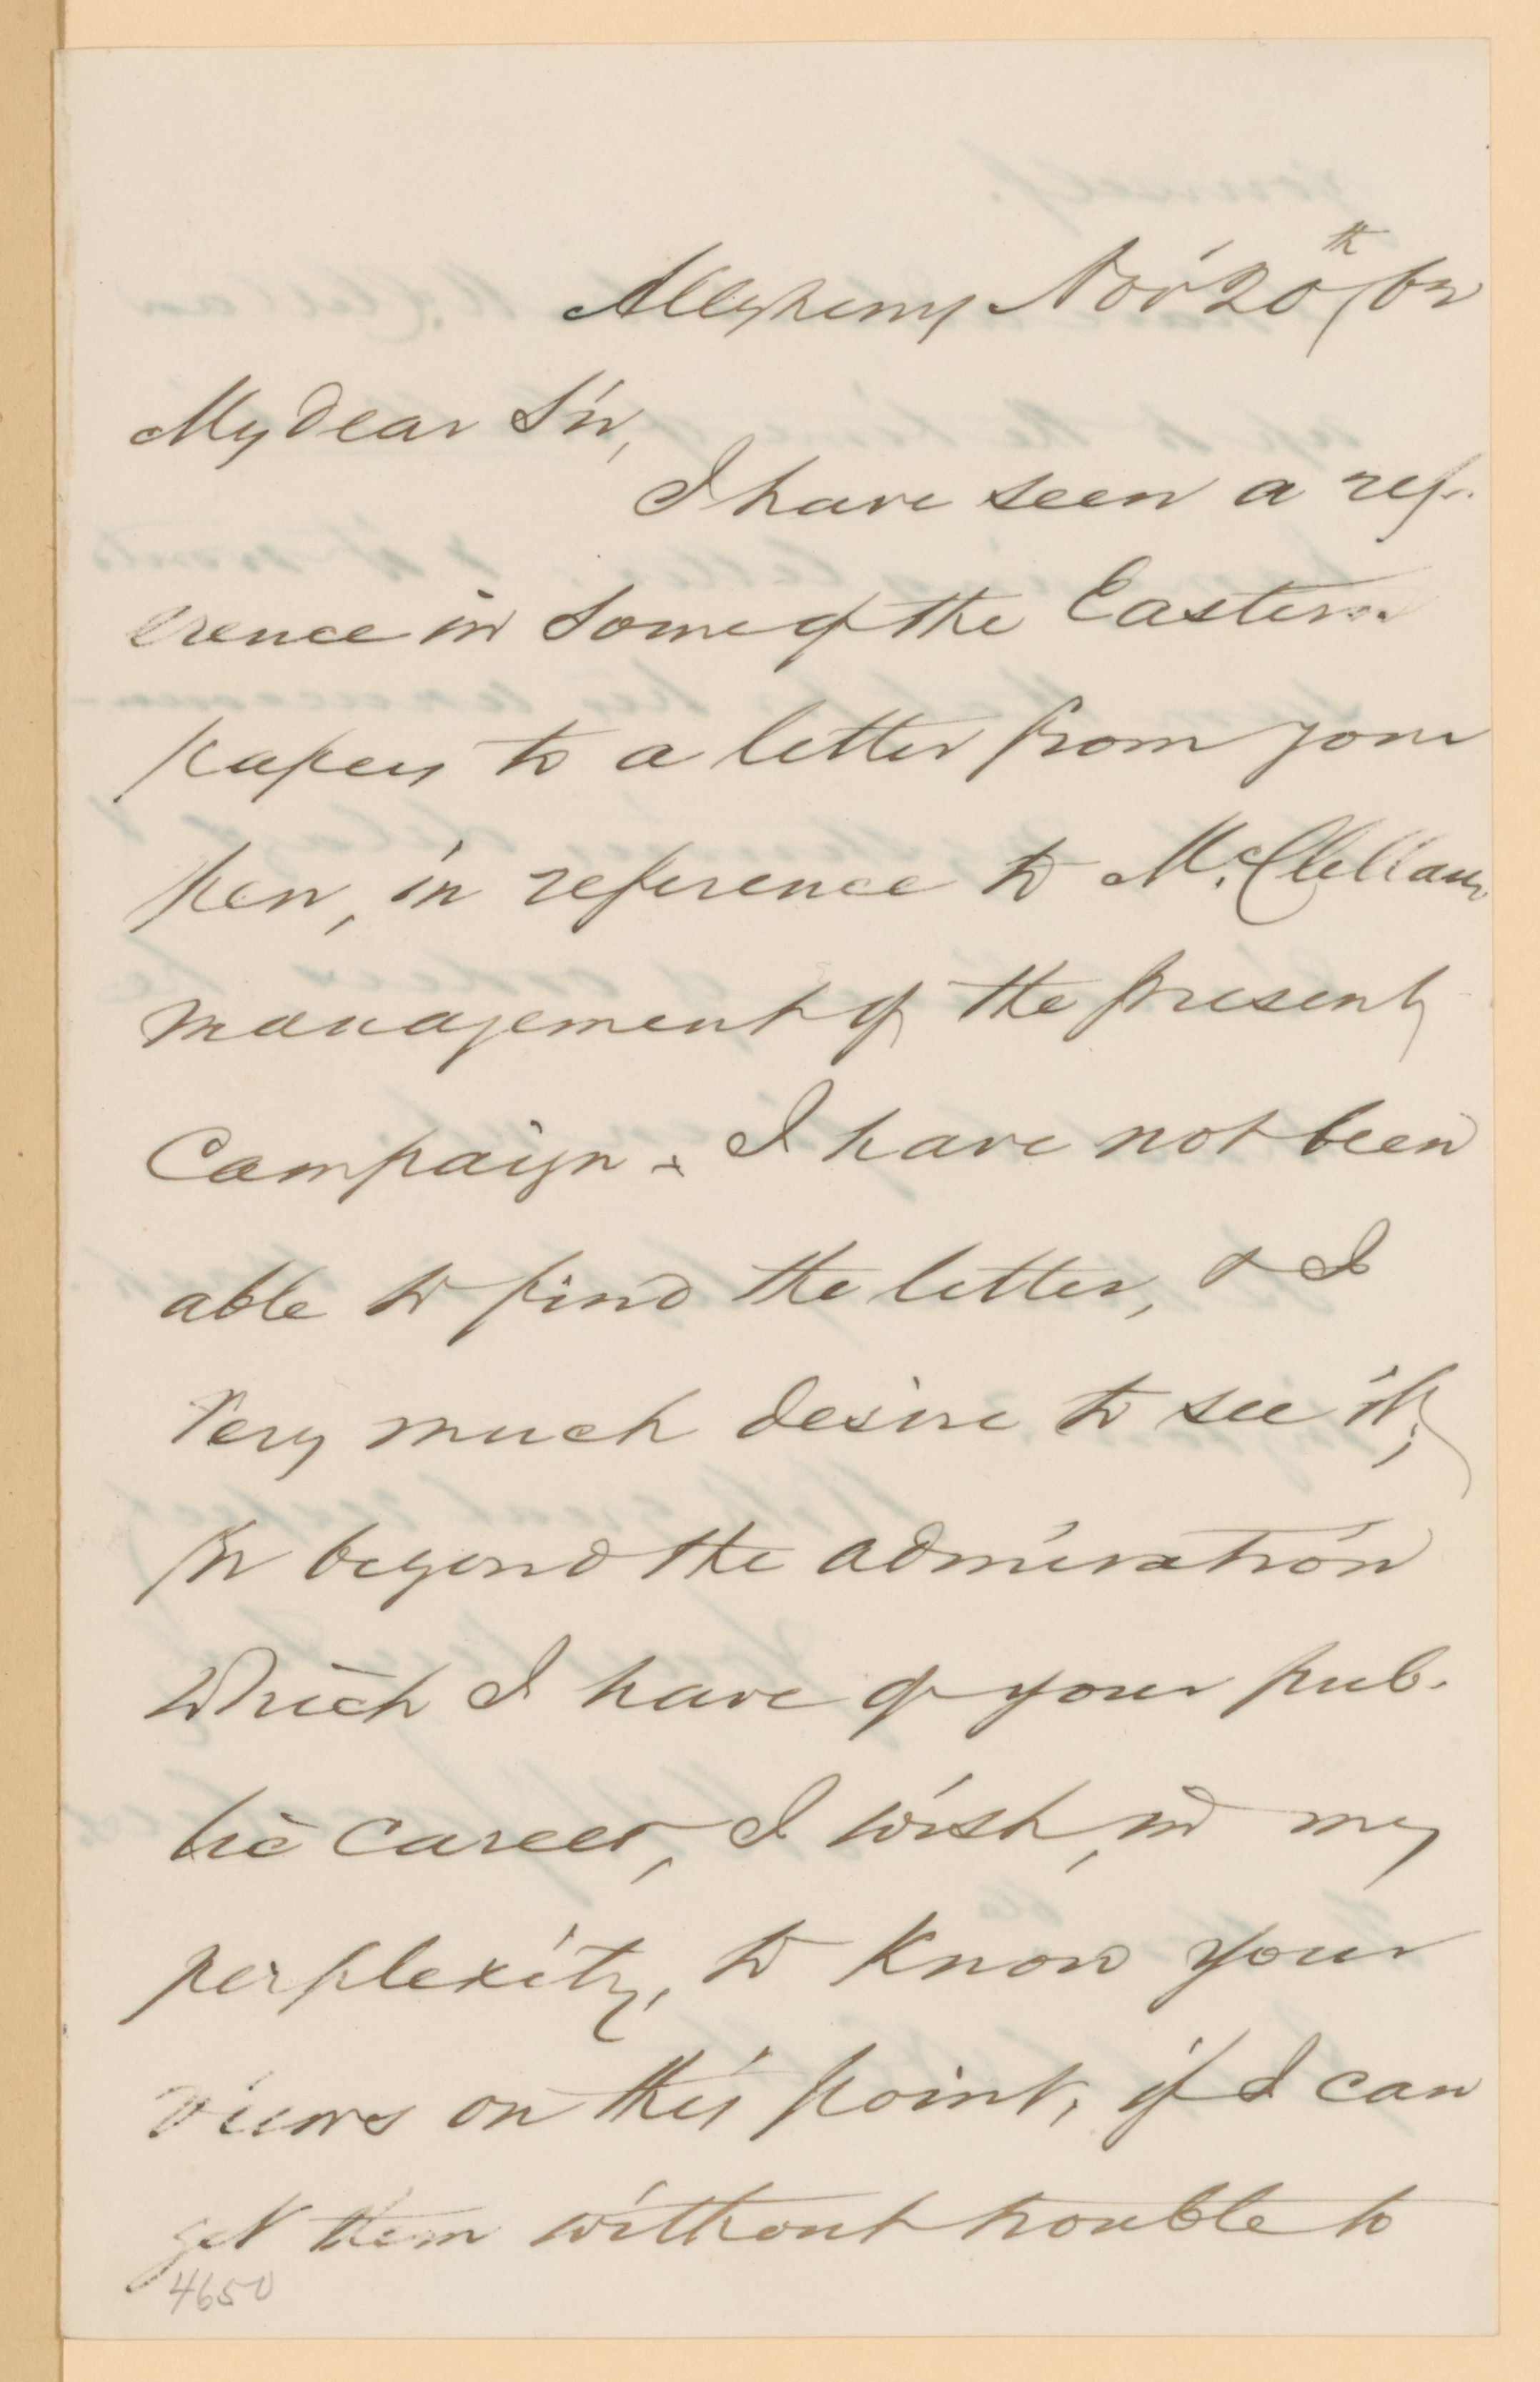 Allegheny Nov 20th/62
My dear Sir,
I have seen a ref-
erence in some of the Eastern
papers to a letter from your
pen, in reference to McClellan's
management of the present
Campaign. I have not been
able to find the letter, & I
very much desire to see it;
for beyond the admiration
which I have of your pub-
lic career, I wish, in my
perplexity, to know your
views on this point, if I can
get them without trouble to
4650